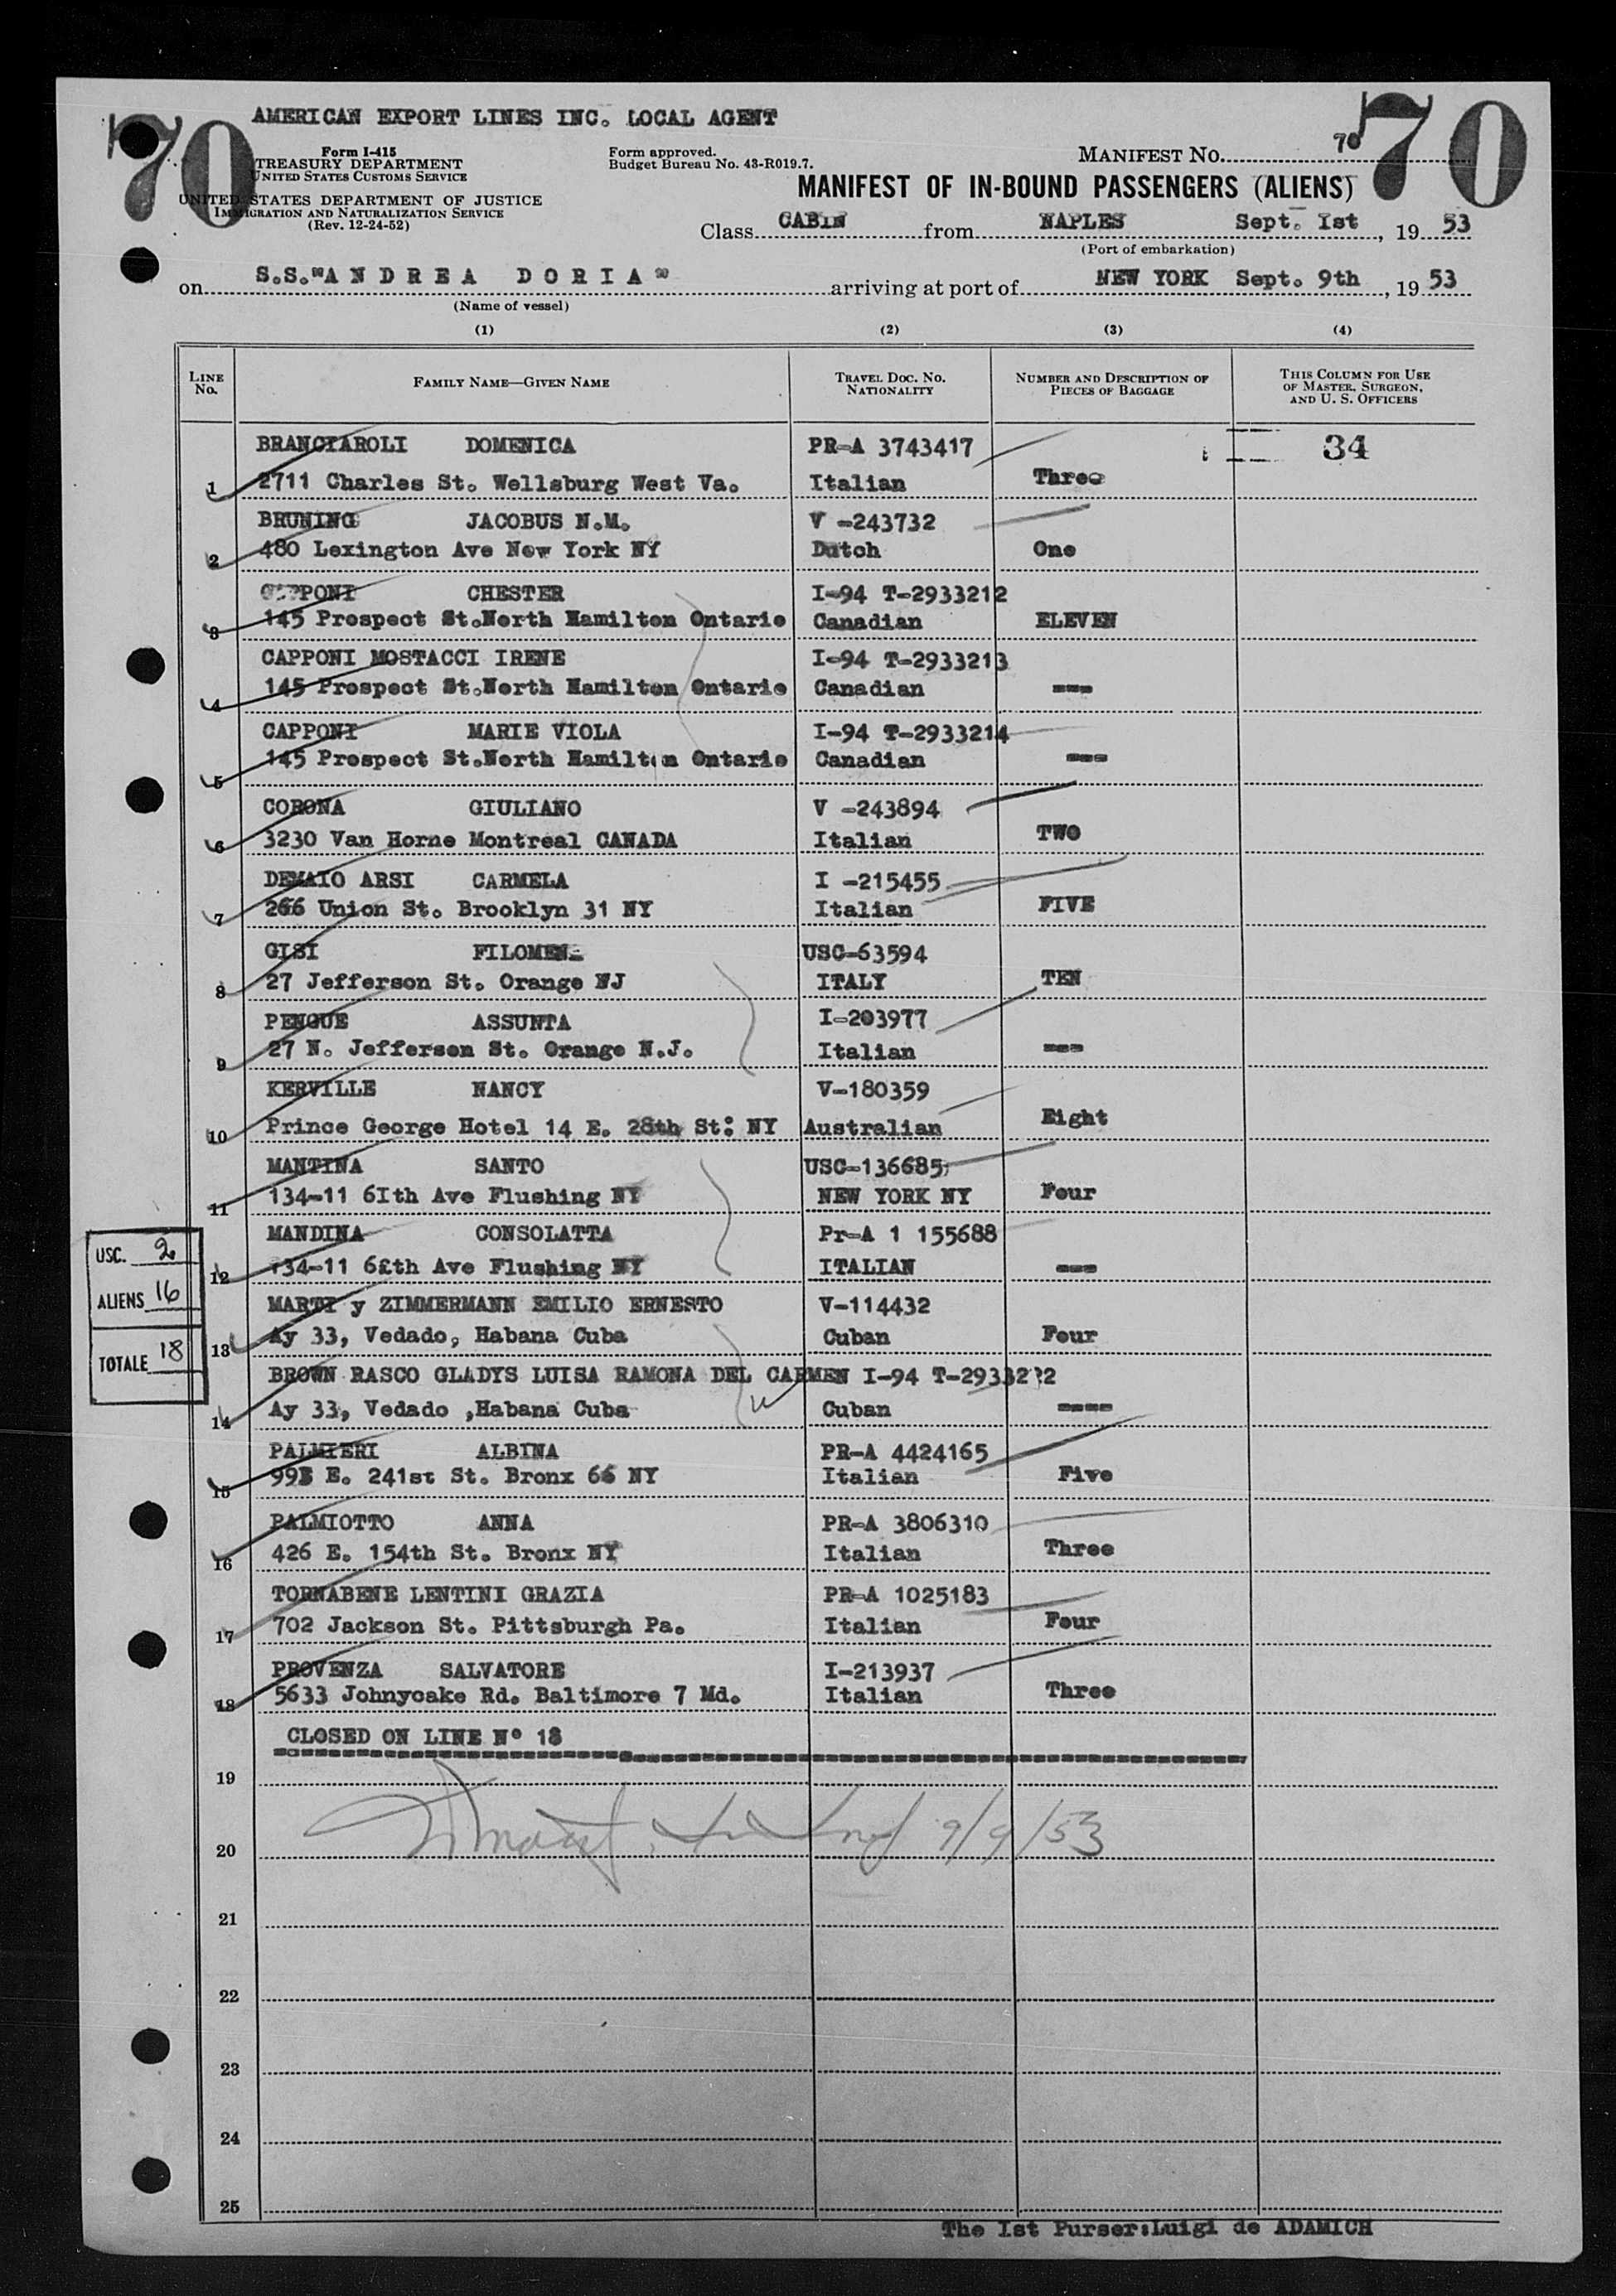 70
70
AMERICAN EXPORT LINES INC. LOCAL AGENT
Form I-415
TREASURY DEPARTMENT
UNITED STATES CUSTOMS SERVICE
UNITED STATES DEPARTMENT OF JUSTICE
IMMIGRATION AND NATURALIZATION SERVICE
(Rev. 12-24-52)
Form approved.
Budget Bureau No. 43-R019.7.
MANIFEST NO. 70
MANIFEST OF IN-BOUND PASSENGERS (ALIENS)
Class CABIN from NAPLES Sept. Ist, 19 53
(Port of embarkation)
on S.S."A N D R E A D O R I A" arriving at port of NEW YORK Sept. 9th, 19 53
(Name of vessel)
(1) (2) (3) (4)
LINE NO. FAMILY NAME—GIVEN NAME TRAVEL DOC. NO. NATIONALITY NUMBER AND DESCRIPTION OF PIECES OF BAGGAGE THIS COLUMN FOR USE OF MASTER, SURGEON, AND U. S. OFFICERS
BRANCIAROLI DOMENICA PR-A 3743417 34
1 2711 Charles St. Wellsburg West Va. Italian Three
BRUNING JACOBUS N.M. V -243732
2 480 Lexington Ave New York NY Dutch One
CAPPONI CHESTER I-94 T-2933212
3 145 Prospect St.North Hamilton Ontario Canadian ELEVEN
CAPPONI MOSTACCI IRENE I-94 T-2933213
4 145 Prospect St.North Hamilton Ontario Canadian ---
CAPPONI MARIE VIOLA I-94 T-2933214
5 145 Prospect St.North Hamilton Ontario Canadian ---
CORONA GIULIANO V -243894
6 3230 Van Horne Montreal CANADA Italian TWO
DEMAIO ARSI CARMELA I -215455
7 266 Union St. Brooklyn 31 NY Italian FIVE
GISI FILOMENA USC-63594
8 27 Jefferson St. Orange NJ ITALY TEN
PENGUE ASSUNTA I-203977
9 27 N. Jefferson St. Orange N.J. Italian ---
KERVILLE NANCY V-180359
10 Prince George Hotel 14 E. 28th St: NY Australian Eight
MANTINA SANTO USC-136685
11 134-11 6Ith Ave Flushing NY NEW YORK NY Four
MANDINA CONSOLATTA Pr-A 1 155688
12 134-11 6th Ave Flushing NY ITALIAN ---
MARTI y ZIMMERMANN EMILIO ERNESTO V-114432
13 Ay 33, Vedado, Habana Cuba Cuban Four
BROWN RASCO GLADYS LUISA RAMONA DEL CARMEN I-94
14 Ay 33, Vedado ,Habana Cuba Cuban ----
PALMIERI ALBINA PR-A 4424165
15 993 E. 241st St. Bronx 66 NY Italian Five
PALMIOTTO ANNA PR-A 3806310
16 426 E. 154th St. Bronx NY Italian Three
TORNABENE LENTINI GRAZIA PR-A 1025183
17 702 Jackson St. Pittsburgh Pa. Italian Four
PROVENZA SALVATORE I-213937
18 5633 Johnycake Rd. Baltimore 7 Md. Italian Three
CLOSED ON LINE Nº 18
19
20 9/9/53
21
22
23
24
25
USC. 2
ALIENS 16
TOTALE 18
The Ist Purser:Luigi de ADAMICH